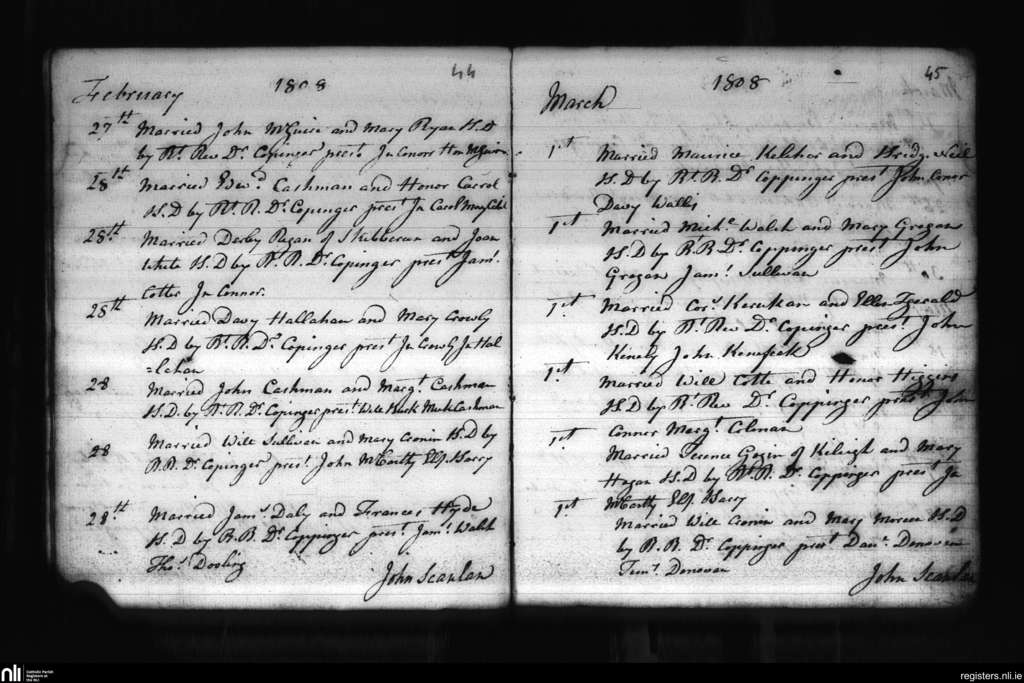 44
February 1808
27th Married John McGuire and Mary Ryan H.D
by Rt. Rev Dr. Copinger prest. Jn Connors Hon McGuire
28th Married Edwd. Cashman and Honor Carrol
H.D by Rt. R. Dr. Copinger prest. Jn Carrol Mary
28th. Married Derby Ragan of Skibberean and Joan
White H.D by Rt. R. Dr. Copinger prest. Jams.
Cotter Jn Connor.
28th Married Davy Hallahan and Mary Crowly
H.D by Rt. R. Dr. Copinger prest. Jn Crowly Jn Hal
=lehan
28 Married John Cashman and Margt. Cashman
H.D. by Rt. R. Dr. Copinger prest. Will Mick Cashman
28 Married Will Sullivan and Mary Cronin H.D by
R.R. Dr. Copinger prest. John McCarthy Elis. Barry
28th Married Jams. Daly and Frances Hyde
H.D by R.R. Dr. Coppinger prest. Jams. Walsh
Thos. Dooling
John Scanlan
45
1808
March
1st Married Maurice Kelcher and Bridg. Neil
H.D by Rt. R. Dr. Coppinger prest. John Connor
Davy Wallis
1st Married Miche. Walsh and Mary Grogan
H.D by R.R Dr. Coppinger prest. John
Grogan Jams. Sullivan
1st Married Cors. and Ellen
H.D by Rt. Rev Dr. Copinger prest. John
Kenely John Kenefick
1st. Married Will Cotte and Honor Higgins
H.D by Rt. Rev Dr. Coppinger prest. John
Connor Margt. Colman
1st Married Terence Gogin of Kileigh and Mary
Hogan H.D by Rt. R. Dr. Coppinger prest. Jn
McCarthy Elis. Barry
1st Married Will Cronin and Mary H.D
by R.R. Dr. Coppinger prest Danl. Donovan
Timt. Donovan
John Scanlan
nli
Catholic Parish
Registers at
the NLI
registers.nli.ie